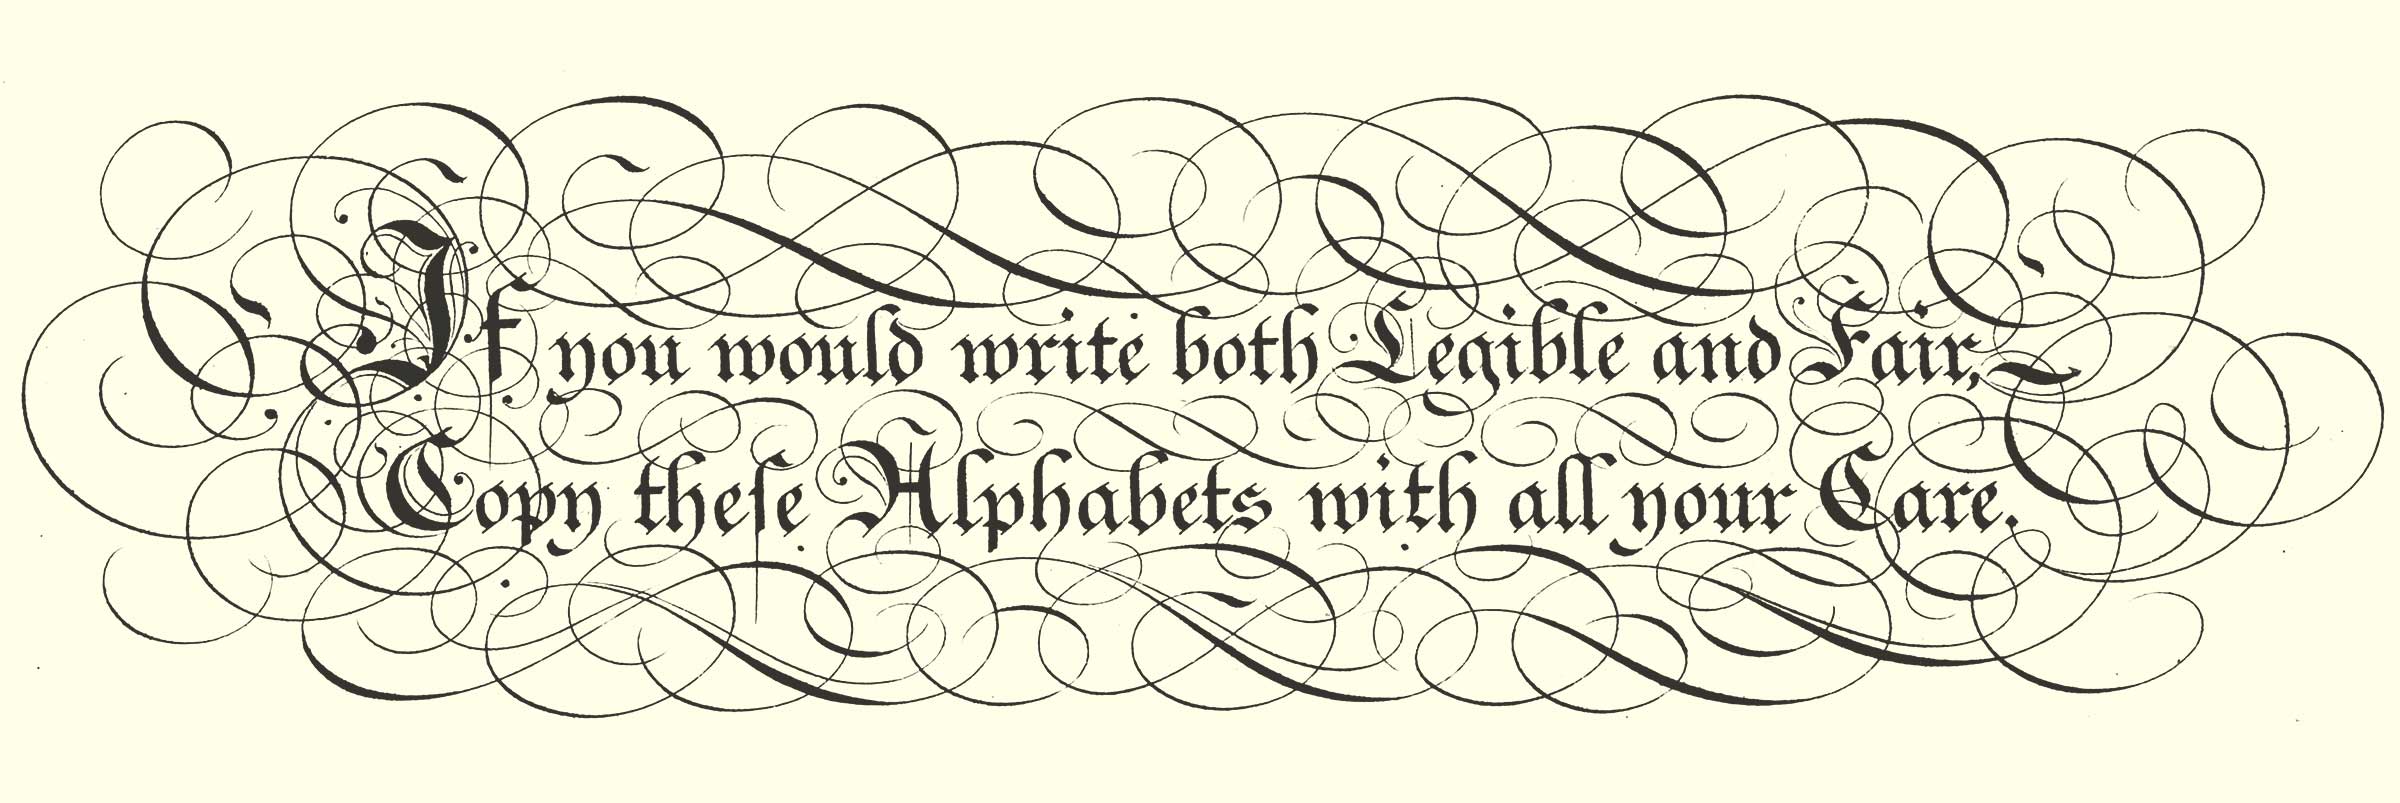 If you would write both Legible and Fair,
Copy theſe Alphabets with all your Care.